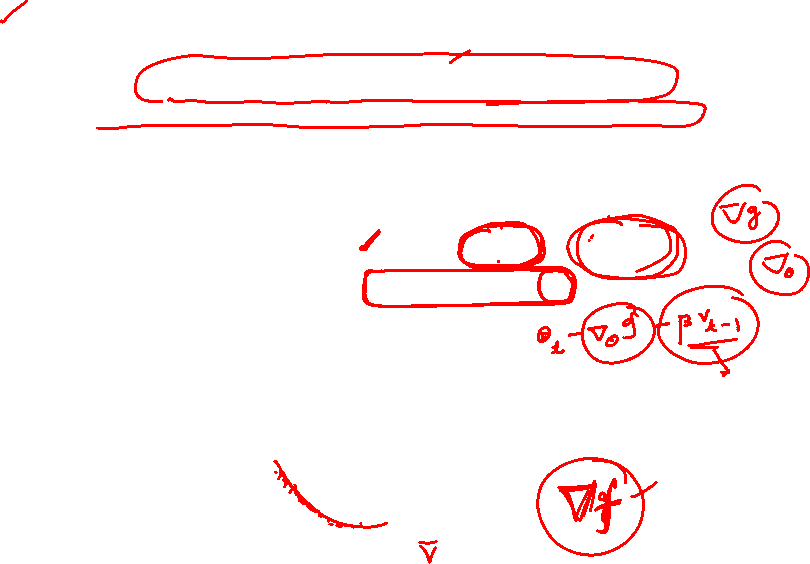 ∇g
∇θ
θ_t - ∇_θ g - β v_{t-1}
∇f
∇